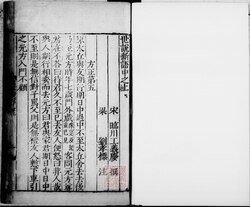 世說新語中之上
宋 臨川王義慶 撰
梁 劉孝標 注
方正第五
陳太丘與友期行期日中過中不至太丘舍去去後
乃至元方時年七歲門外戲 客問元方尊
君在不答曰待君久不至已去友人便怒曰非人哉
與人期行相委而去元方曰君與家君期日中日中
不至則是無信對子罵父則是無禮友人慚下車引
之元方入門不顧